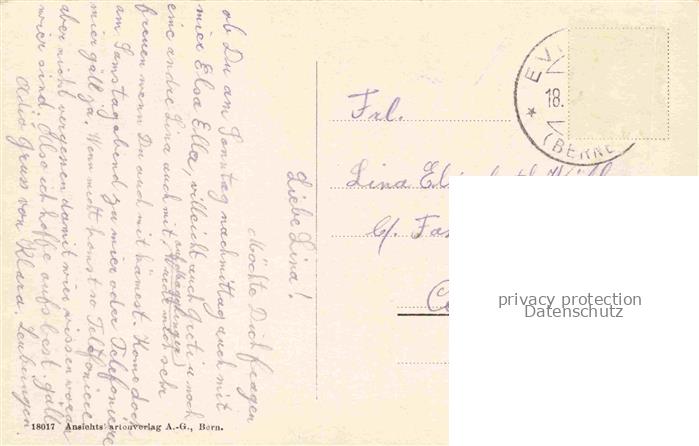 Liebe Lina!
Möchte Dich fragen
ob Du am Sonntag nachmittag auch mit
mier Elsa Ella, villeicht auch Greti u noch
eine andre Lina auch mit
freuen wenn Du auch mit kämest. Kome doch
am Samstagabend zu mier oder Telefoniere
mier gäll ja. Wenn nicht komst so Telefoniere
aber nicht vergessen damit wier wissen woran
wier sind. Also ich hoffe aufs best. gäll
Adio Gruss von Klara. Leubringen.
Frl.
Lina
c/. Fam
EV
18.
(BERNE
18017 Ansichtskartenverlag A.-G., Bern.
privacy protection
Datenschutz